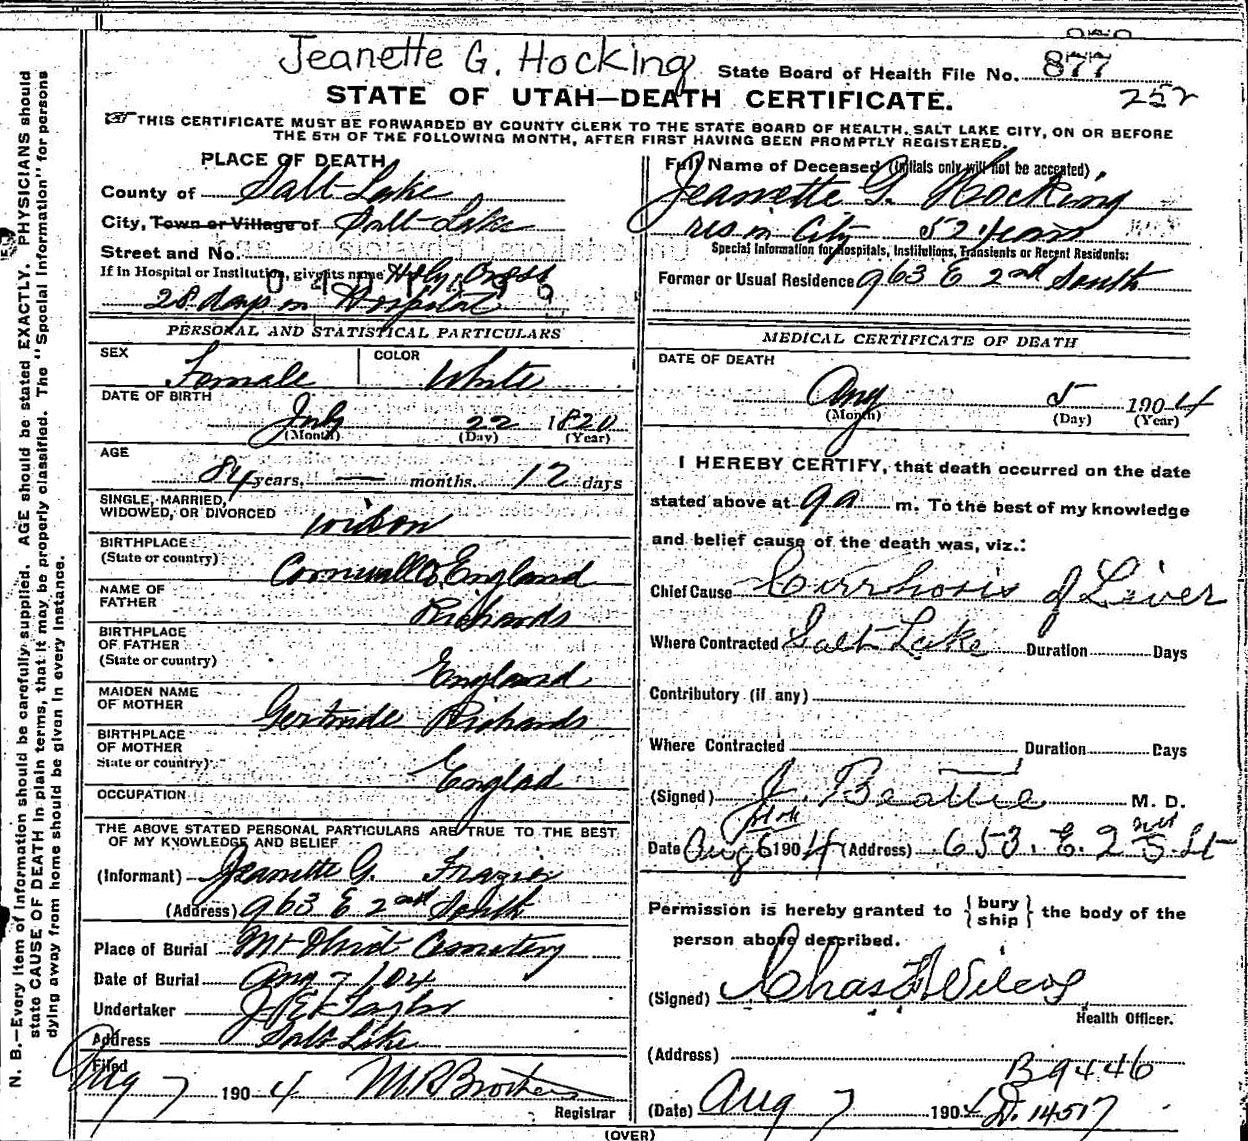 Jeanette G. Hocking
State Board of Health File No. 877
252
STATE OF UTAH—DEATH CERTIFICATE.
THIS CERTIFICATE MUST BE FORWARDED BY COUNTY CLERK TO THE STATE BOARD OF HEALTH, SALT LAKE CITY, ON OR BEFORE
THE 5TH OF THE FOLLOWING MONTH, AFTER FIRST HAVING BEEN PROMPTLY REGISTERED.
PLACE OF DEATH
County of Salt Lake
City, Town or Village of Salt Lake
Street and No.
If in Hospital or Institution, give its name Holy Cross
28 days in Hospital
PERSONAL AND STATISTICAL PARTICULARS
SEX Female COLOR White
DATE OF BIRTH
July 22 1820
(Month) (Day) (Year)
AGE
84 years, — months. 12 days
SINGLE, MARRIED,
WIDOWED, OR DIVORCED widow
BIRTHPLACE
(State or country) Cornwall England
NAME OF
FATHER Richards
BIRTHPLACE
OF FATHER
(State or country) England
MAIDEN NAME
OF MOTHER Gertrude Richards
BIRTHPLACE
OF MOTHER
State or country) Englad
OCCUPATION
THE ABOVE STATED PERSONAL PARTICULARS ARE TRUE TO THE BEST
OF MY KNOWLEDGE AND BELIEF
(Informant) Jeanette G. Frazier
(Address) 963 E 2nd South
Place of Burial Mt Olivet Cemetery
Date of Burial Aug 7 / 04
Undertaker J E Taylor
Address Salt Lake
Filed
Aug 7 1904
Registrar
Full Name of Deceased (Initials only will not be accepted)
Jeanette G. Hocking
res in City 52 years
Special Information for Hospitals, Institutions, Transients or Recent Residents:
Former or Usual Residence 963 E 2nd South
MEDICAL CERTIFICATE OF DEATH
DATE OF DEATH
Aug 5 1904
(Month) (Day) (Year)
I HEREBY CERTIFY, that death occurred on the date
stated above at 9 a m. To the best of my knowledge
and belief cause of the death was, viz.:
Chief Cause Cirrhosis of Liver
Where Contracted Salt Lake Duration Days
Contributory (if any)
Where Contracted Duration Days
(Signed) J. Beattie M. D.
Date Aug 6 1904 (Address) 653. E. 2nd S. St
Permission is hereby granted to {bury ship} the body of the
person above described.
(Signed) Chas F Wilcox
Health Officer.
(Address)
B 9446
(Date) Aug 7 1904 D. 14517
(OVER)
N. B.—Every item of information should be carefully supplied. AGE should be stated EXACTLY. PHYSICIANS should
state CAUSE OF DEATH in plain terms, that it may be properly classified. The "Special Information" for persons
dying away from home should be given in every instance.